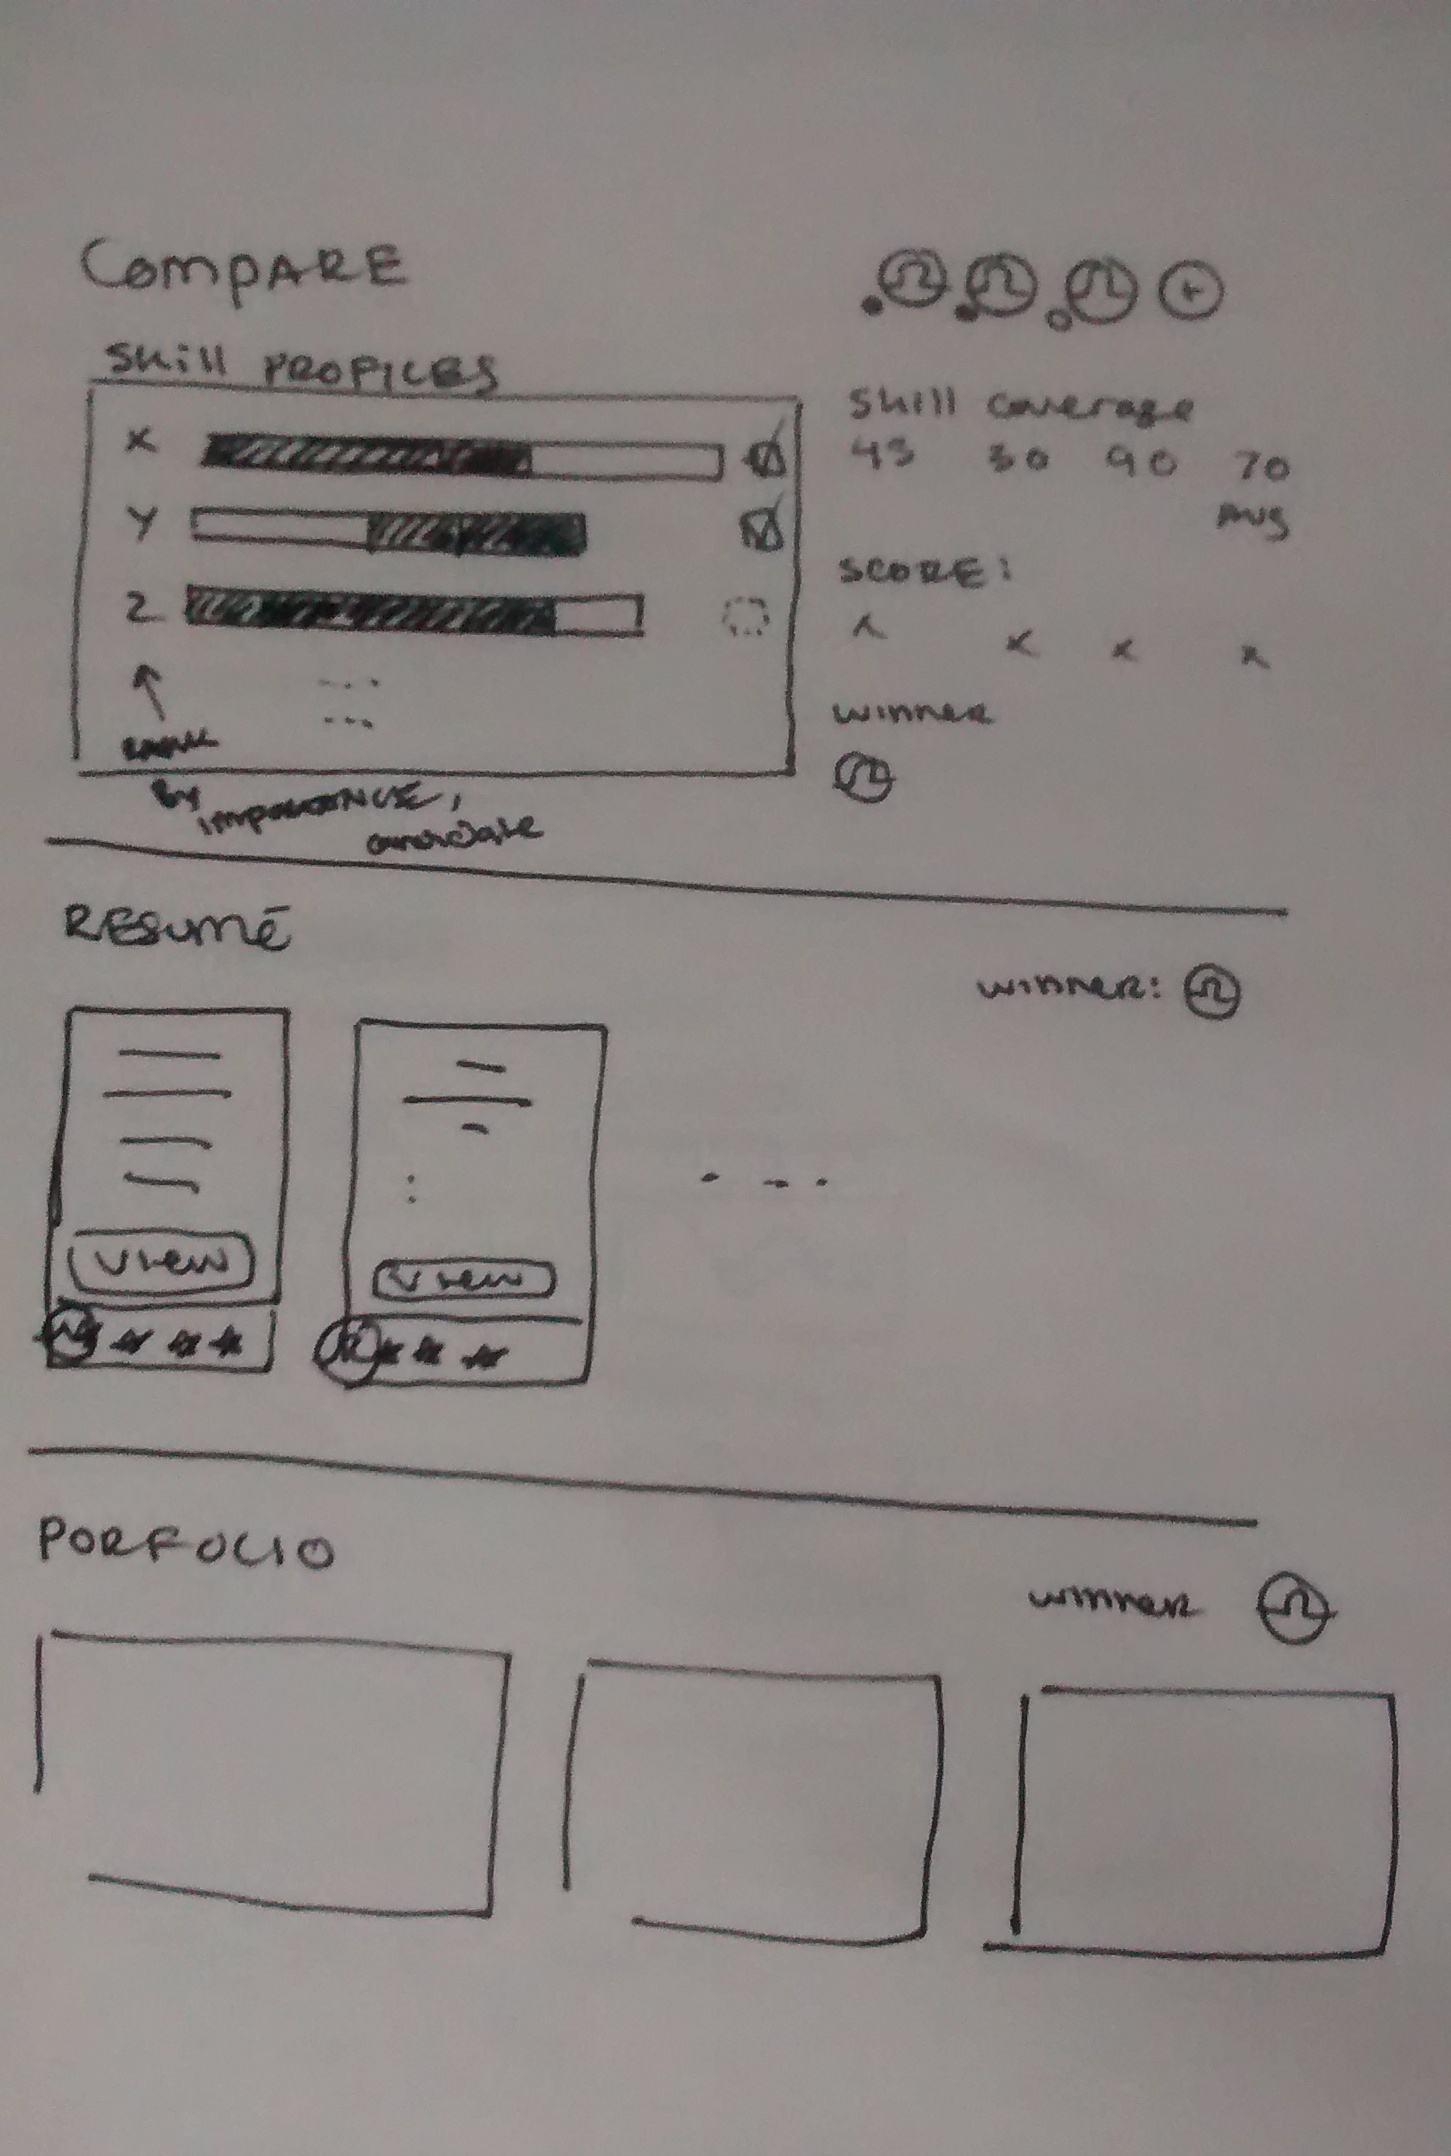 COMPARE
Skill PROFILES
X
Y
Z
RANK
By
IMPORTANCE,
candidate
+
Skill coverage
43 30 90 70
AVG
SCORE:
x x x x
WINNER
RESUMÉ
WINNER:
View
View
PORFOLIO
WINNER